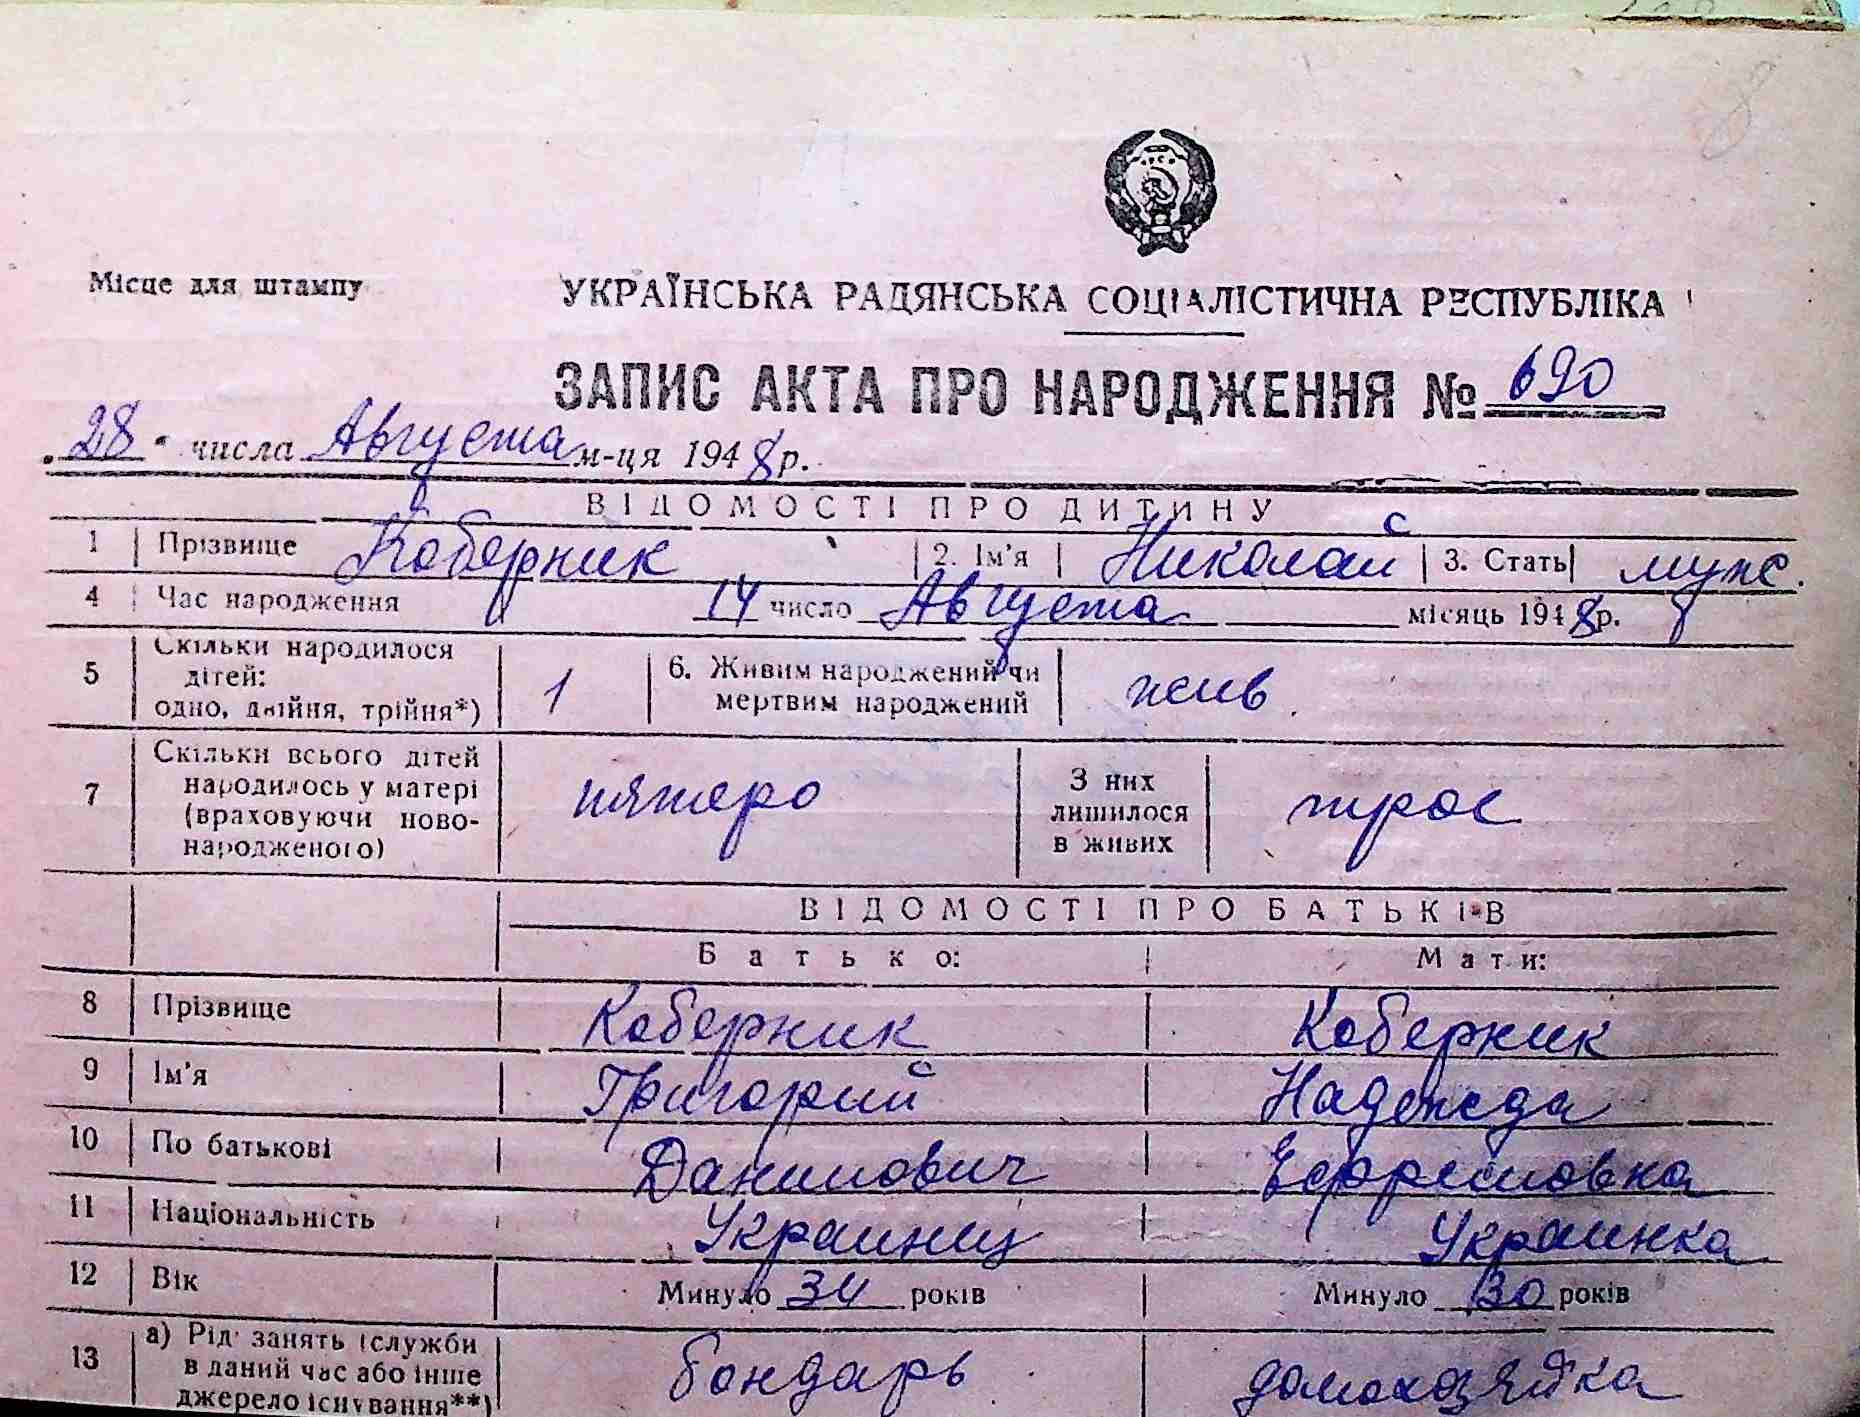 Місце для штампу
УКРАЇНСЬКА РАДЯНСЬКА СОЦІАЛІСТИЧНА РЕСПУБЛІКА
ЗАПИС АКТА ПРО НАРОДЖЕННЯ № 690
28 числа Августа м-ця 1948 р.
ВІДОМОСТІ ПРО ДИТИНУ
1 Прізвище Коберник 2. Ім'я Николай 3. Стать муж.
4 Час народження 14 число Августа місяць 1948 р.
5 Скільки народилося дітей: одно, двійня, трійня*) 1 6. Живим народжений чи мертвим народжений жив.
7 Скільки всього дітей народилось у матері (враховуючи новонародженого) пятеро З них лишилося в живих трое
ВІДОМОСТІ ПРО БАТЬКІВ
Батько: Мати:
8 Прізвище Коберник Коберник
9 Ім'я Григорий Надежда
10 По батькові Данилович Ефремовна
11 Національність Украинец Украинка
12 Вік Минуло 34 років Минуло 30 років
13 а) Рід занять (служби в даний час або інше джерело існування**) бондарь домохозяйка